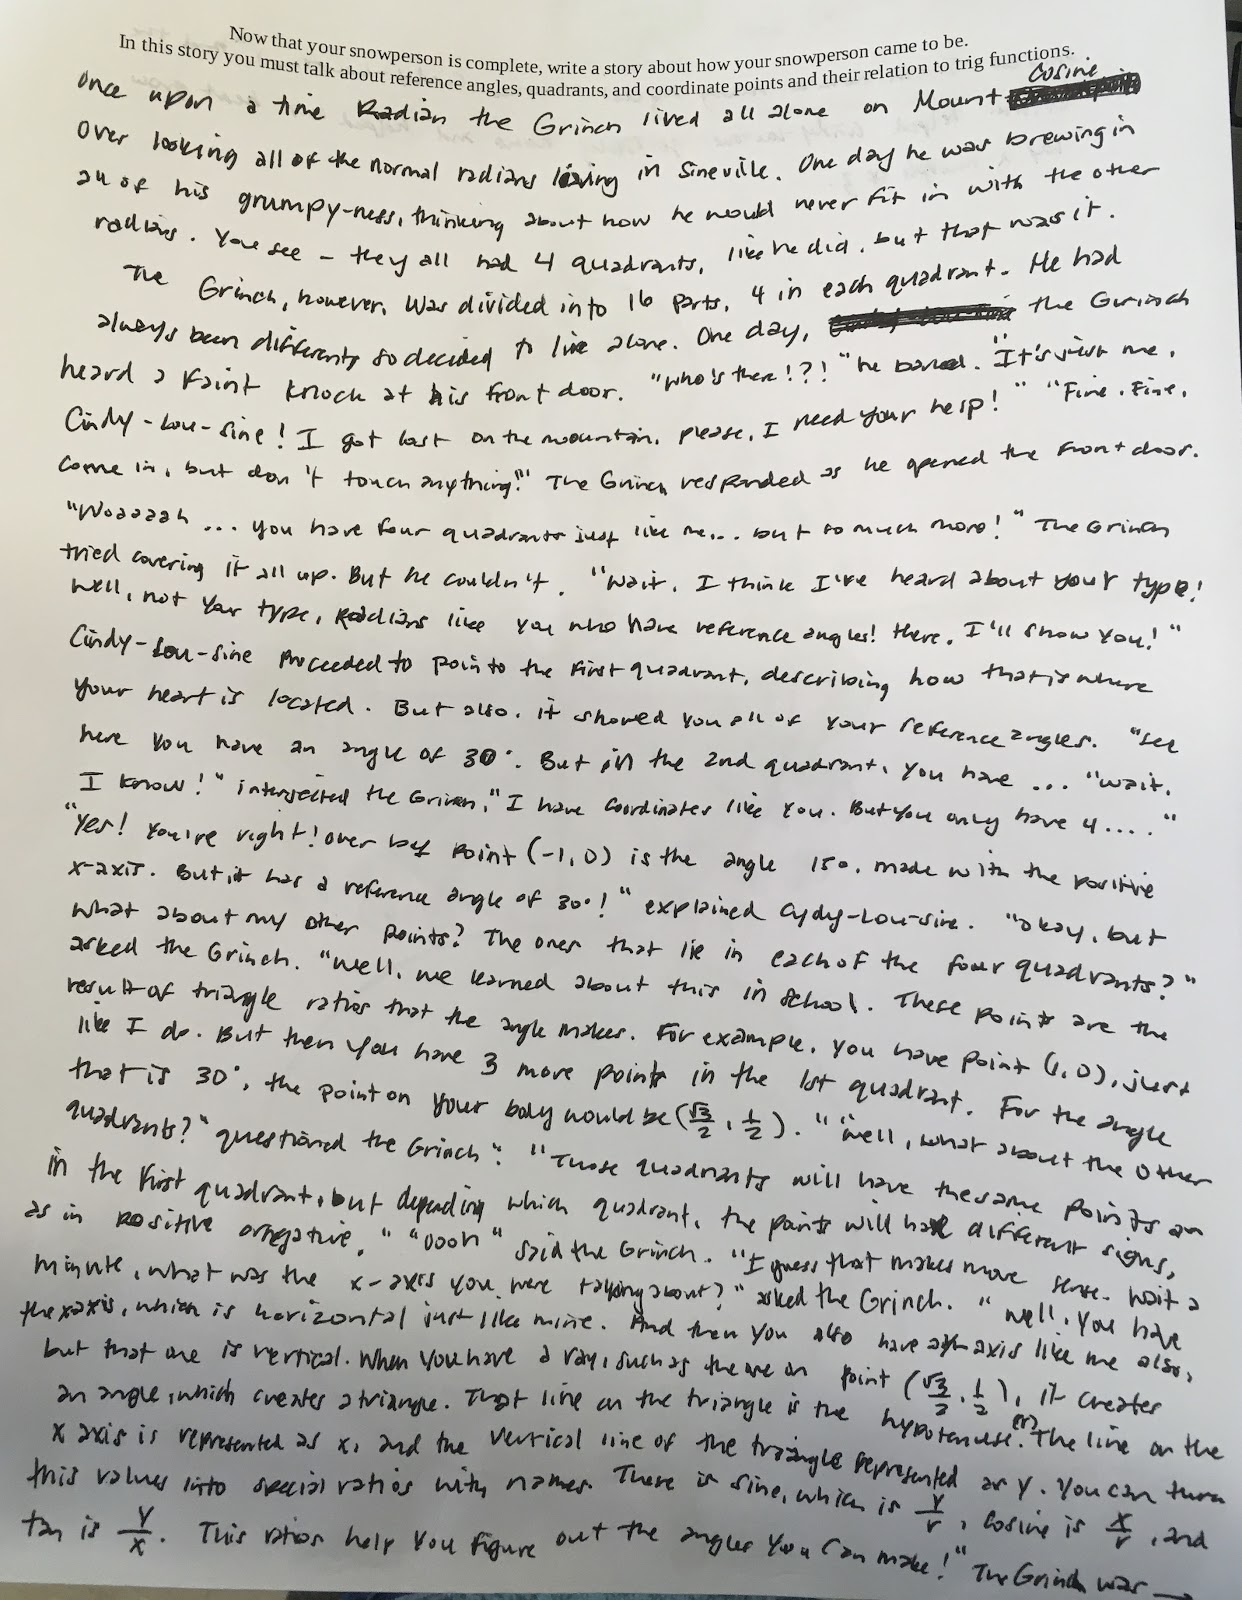 Now that your snowperson is complete, write a story about how your snowperson came to be.
In this story you must talk about reference angles, quadrants, and coordinate points and their relation to trig functions.
Once upon a time Radian the Grinch lived all alone on Mount Cosine
over looking all of the normal radians living in Sineville. One day he was brewing in
all of his grumpy-ness, thinking about how he would never fit in with the other
radians. You see - they all had 4 quadrants, like he did, but that was it.
The Grinch, however, was divided into 16 parts, 4 in each quadrant. He had
always been different, so decided to live alone. One day, the Grinch
heard a faint knock at his front door. "Who's there!?!" he "It's just me,
Cindy-Lou-Sine! I got lost on the mountain, please, I need your help!" "Fine, Fine,
come in, but don't touch anything!" The Grinch responded as he opened the front door.
"Woaaaah ... you have four quadrants just like me... but so much more!" The Grinch
tried covering it all up. But he couldn't. "Wait, I think I've heard about your type!
Well, not your type, Radians like you who have reference angles! There, I'll show you!"
Cindy-Lou-Sine proceeded to point to the first quadrant, describing how that is where
your heart is located. But also, it showed you all of your reference angles. "See
here you have an angle of 30°. But in the 2nd quadrant, you have ... "Wait,
I know!" interjected the Grinch, "I have coordinates like you. But you only have 4...."
"Yes! You're right! Over by point (-1,0) is the angle 150, made with the positive
x-axis. But it has a reference angle of 30°!" explained Cydy-Lou-Sine. "Okay, but
what about my other points? The ones that lie in each of the four quadrants?"
asked the Grinch. "Well, we learned about this in school. These points are the
result of triangle ratios that the angle makes. For example, you have point (1,0), just
like I do. But then you have 3 more points in the 1st quadrant. For the angle
that is 30°, the point on your body would be (√3/2, 1/2)." "Well, what about the other
quadrants?" questioned the Grinch. "Those quadrants will have the same points as
in the first quadrant, but depending which quadrant, the points will have different signs,
as in positive or negative." "Oooh" said the Grinch. "I guess that makes more sense. Wait a
minute, what was the x-axis you were talking about?" asked the Grinch. "Well, you have
the x axis, which is horizontal just like mine. And then you also have a y-axis like me also,
but that one is vertical. When you have a ray, such as the one on point (√3/2, 1/2), it creates
an angle, which creates a triangle. That line on the triangle is the hypotenuse (r). The line on the
x axis is represented as x, and the vertical line of the triangle represented as y. You can turn
this values into special ratios with names. There is sine, which is y/r, cosine is x/r, and
tan is y/x. This ratios help you figure out the angles you can make!" The Grinch was →